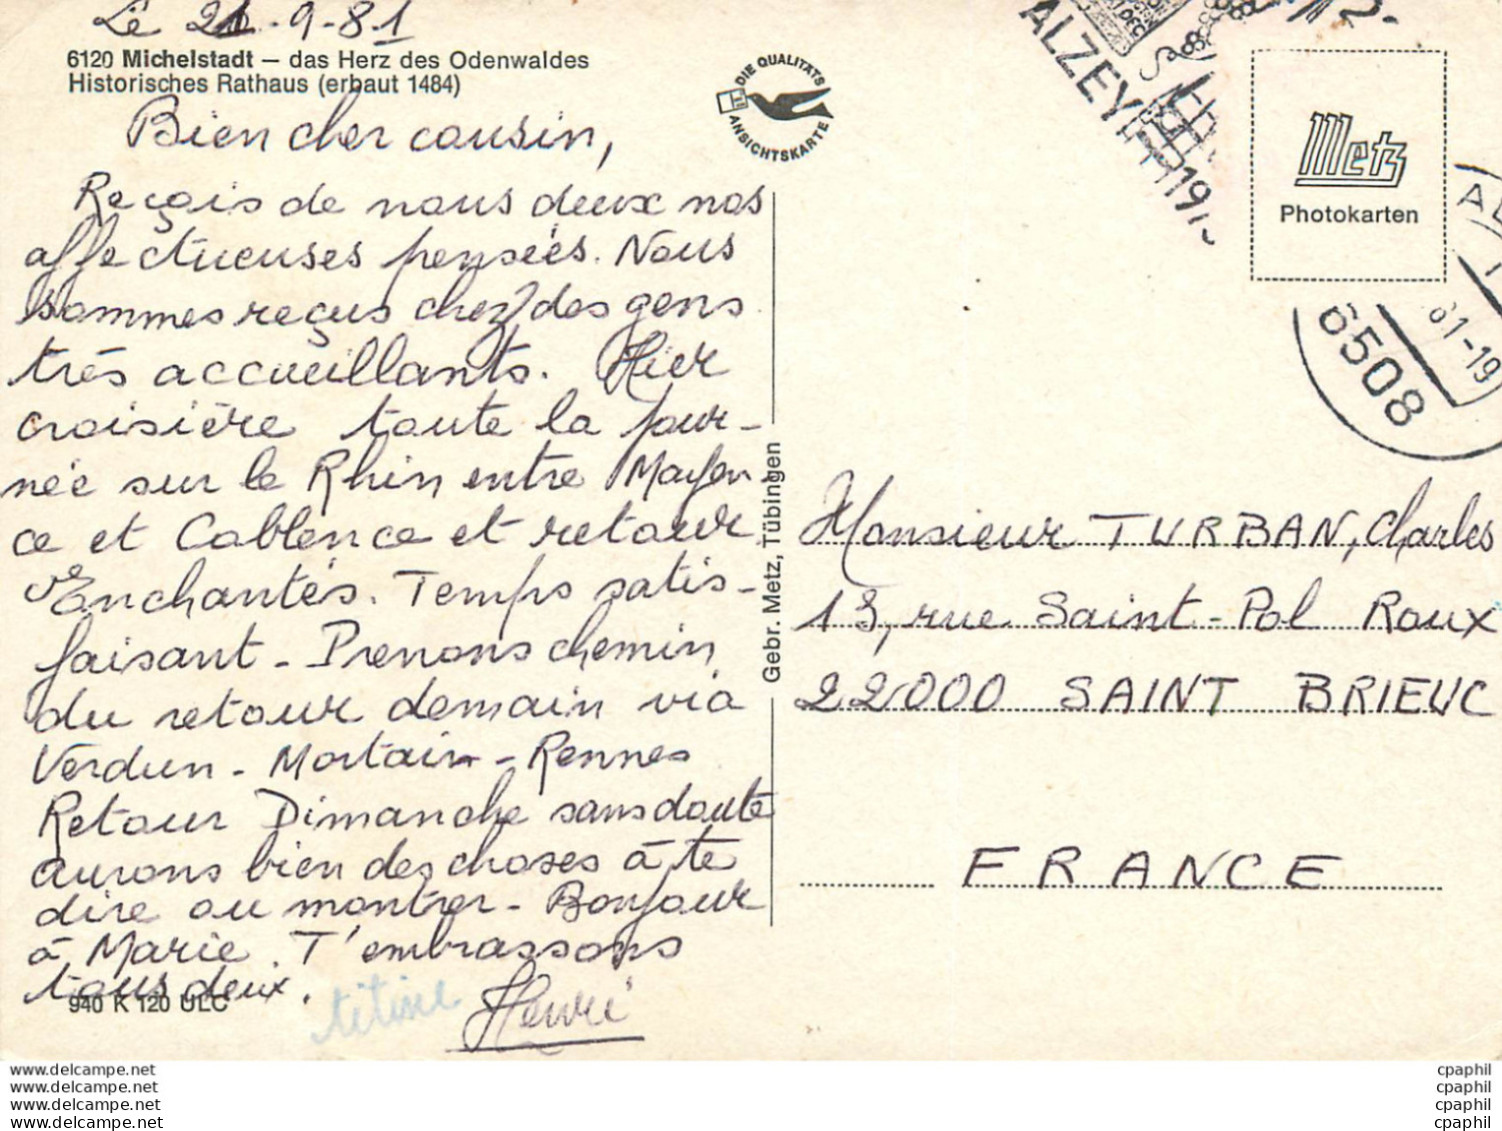 Le 21-9-81
6120 Michelstadt – das Herz des Odenwaldes
Historisches Rathaus (erbaut 1484)
DIE QUALITÄTS
ANSICHTSKARTE
ALZEY
Metz
Photokarten
6508
Bien cher cousin,
Reçois de nous deux nos
affectueuses pensées. Nous
sommes reçus chez des gens
très accueillants. Hier
croisière toute la jour-
née sur le Rhin entre Mayen-
ce et Coblence et retour
Enchantés. Temps satis-
faisant - Prenons chemin
du retour demain via
Verdun - Mortain - Rennes
Retour Dimanche sans doute
aurons bien des choses à te
dire ou montrer - Bonjour
à Marie. T'embrassons
tous deux.
titine
Henri
940 K 120 ULC
Gebr. Metz, Tübingen
Monsieur TURBAN, Charles
13, rue Saint-Pol Roux
22000 SAINT BRIEUC
FRANCE
www.delcampe.net
www.delcampe.net
www.delcampe.net
www.delcampe.net
cpaphil
cpaphil
cpaphil
cpaphil